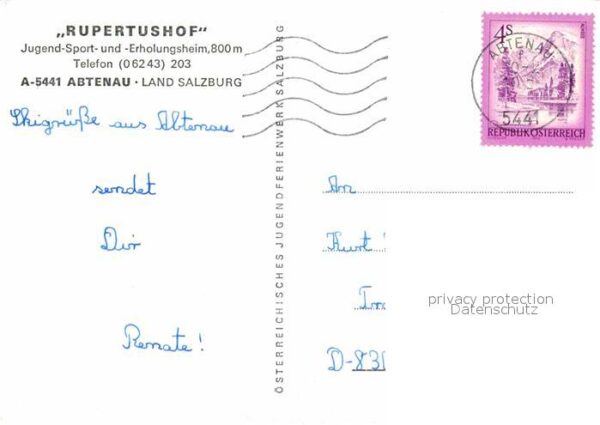 „RUPERTUSHOF"
Jugend-Sport- und -Erholungsheim, 800 m
Telefon (0 62 43) 203
A-5441 ABTENAU · LAND SALZBURG
Skigrüße aus Abtenau
sendet
Dir
Renate!
ÖSTERREICHISCHES JUGENDFERIENWERK SALZBURG
4S
ABTENAU
5441
REPUBLIK ÖSTERREICH
An
Kurt
privacy protection
Datenschutz
D-830